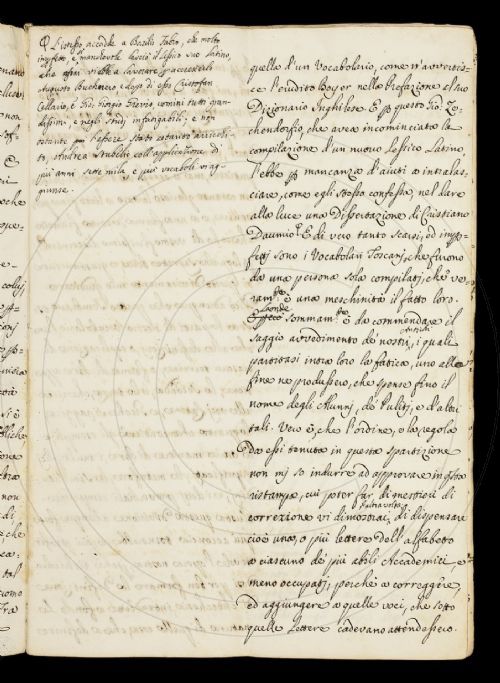 Q L'istesso, accadde a Basilio Fabro, che molto
imperfetto, e manchevole lasciò il Lessico suo Latino,
che assai ebbe a lavorare p accrescerli
Augusto Buchnero, e dopo di esso Cristofan
Cellario, e Gio: Giorgio Grevio, uomini tutti gran-
dissimi, e negli studj infatigabili; e non
ostante p l'essere stato cotanto arricchi-
to, Andrea Stubelio coll'applicatione di
più anni sette mila, e più vocaboli v'ag-
giunse.
quella d'un Vocabolario, come n'avvertis-
ce l'erudito Boyer nella Prefazione al suo
Dizionario Inghilese. E p questo Gio:
che avea incominciato la
compilazione d'un nuovo Lessico Latino
l'ebbe p mancanza d'aiuti a intralas-
ciare, come egli stesso confessa, nel dare
alla luce una Dissertazione di Cristiano
Daumio. Q E di vero tanto scarsi, ed imp-
fetti sono i Vocabolarj Toscani, che furono
da una persona sola compilati, che ve-
ram.te è una meschinità il fatto loro.
Laonde sommam.te è da commendare il
saggio avvedimento de' nostri Antichi, i quali
partitasi intra loro la fatica, una alla
fine ne produssero, che spense fino il
nome degli Alunni, de' Politi, e d'altri
tali. Vero è, che l'ordine, e la regola
da essi tenuta in questa spartizione
non mi so indurre ad approvare in q.sta
ristampa, cui poter far di mestieri di
correzione vi dimostrai, altra volta di dispensare
cioè una, o più lettere dell'alfabeto
a ciascuno de' più abili Accademici, e
meno occupati, perchè a correggere,
ed aggiungere a quelle voci, che sotto
quelle lettere cadevano attendessero.